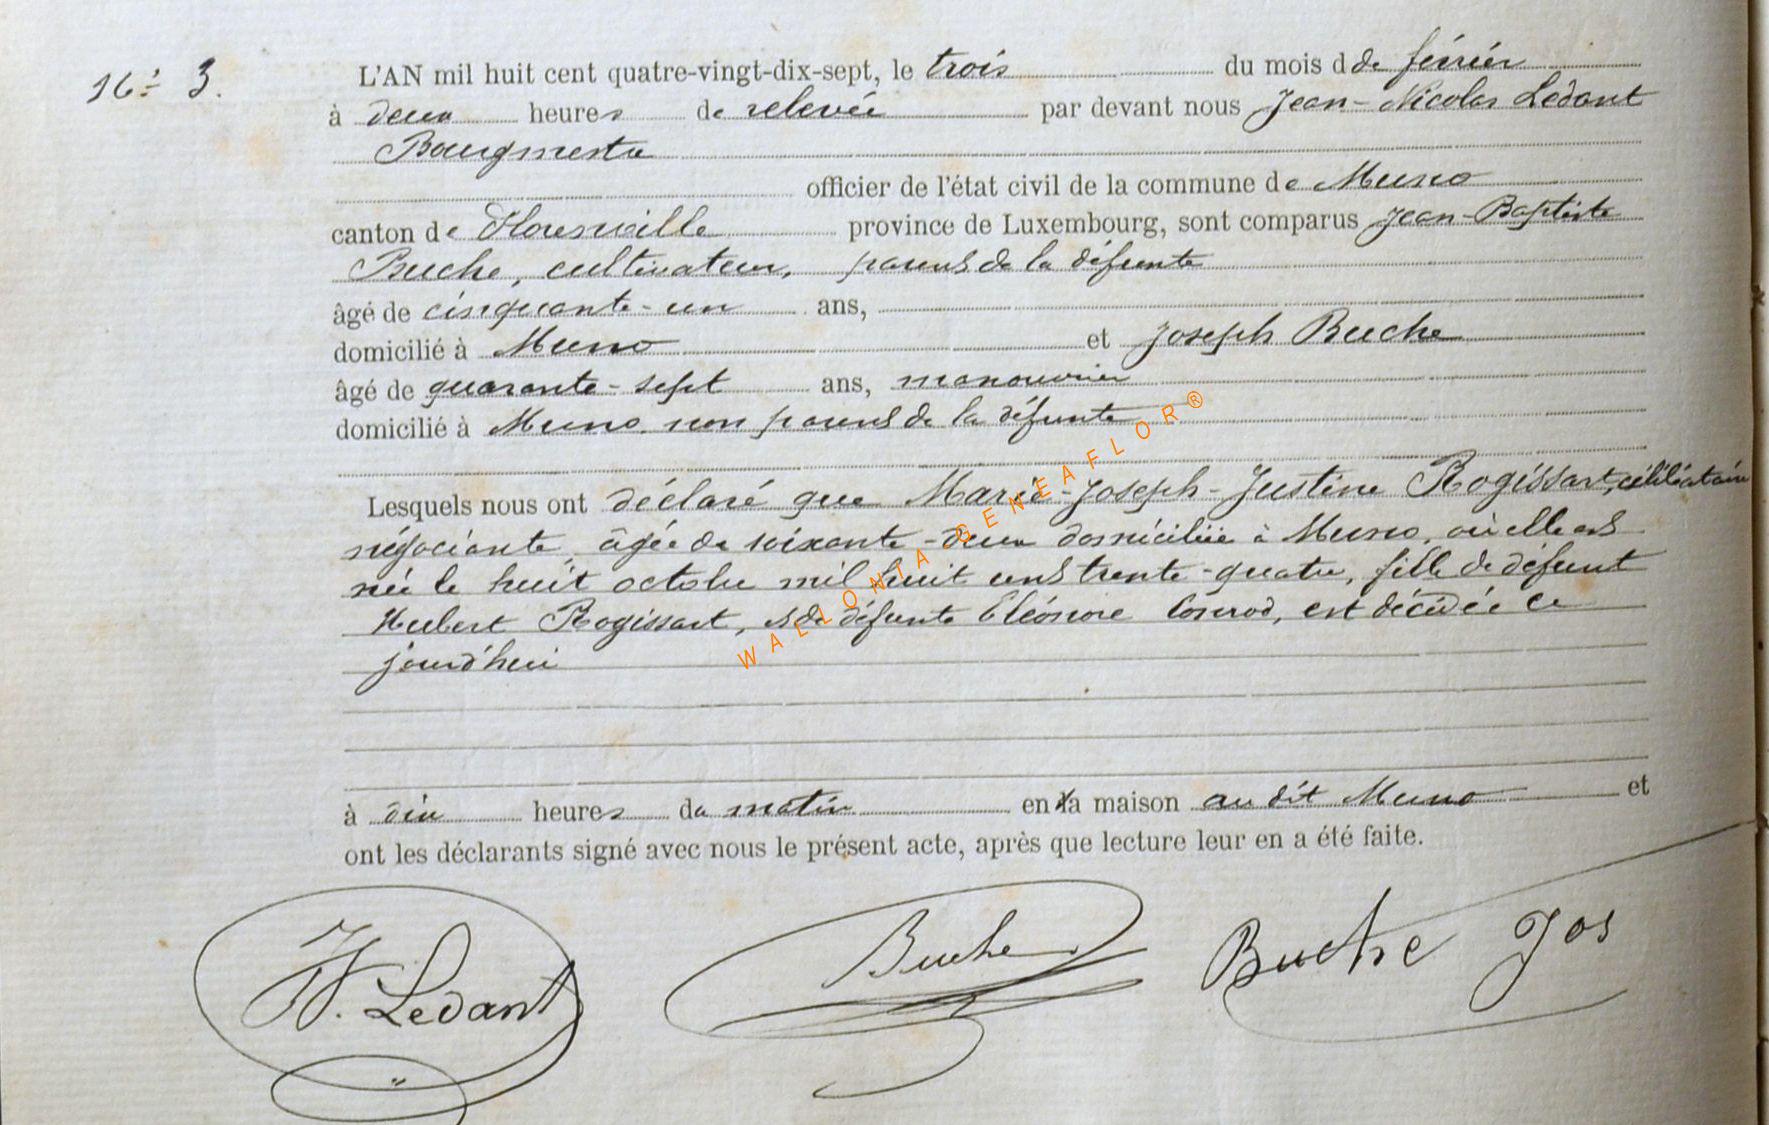 16è 3.
L'AN mil huit cent quatre-vingt-dix-sept, le trois du mois d de février
à deux heures de relevée par devant nous Jean-Nicolas Ledant
Bourgmestre
officier de l'état civil de la commune de Muno
canton de Florenville province de Luxembourg, sont comparus Jean-Baptiste
Buche, cultivateur, parent de la défunte
âgé de cinquante-un ans,
domicilié à Muno et Joseph Buche
âgé de quarante-sept ans, manouvrier
domicilié à Muno, non parent de la défunte
Lesquels nous ont déclaré que Marie-Joseph-Justine Rogissart, célibataire
négociante, âgée de soixante-deux domiciliée à Muno, où elle est
née le huit octobre mil huit cent trente-quatre, fille de défunt
Hubert Rogissart, et de défunte Eléonore Conrod, est décédée ce
jourd'hui
à dix heures du matin en la maison au dit Muno et
ont les déclarants signé avec nous le présent acte, après que lecture leur en a été faite.
N. Ledant Buche Buche Jos
WALLONIA GENEAFLOR®